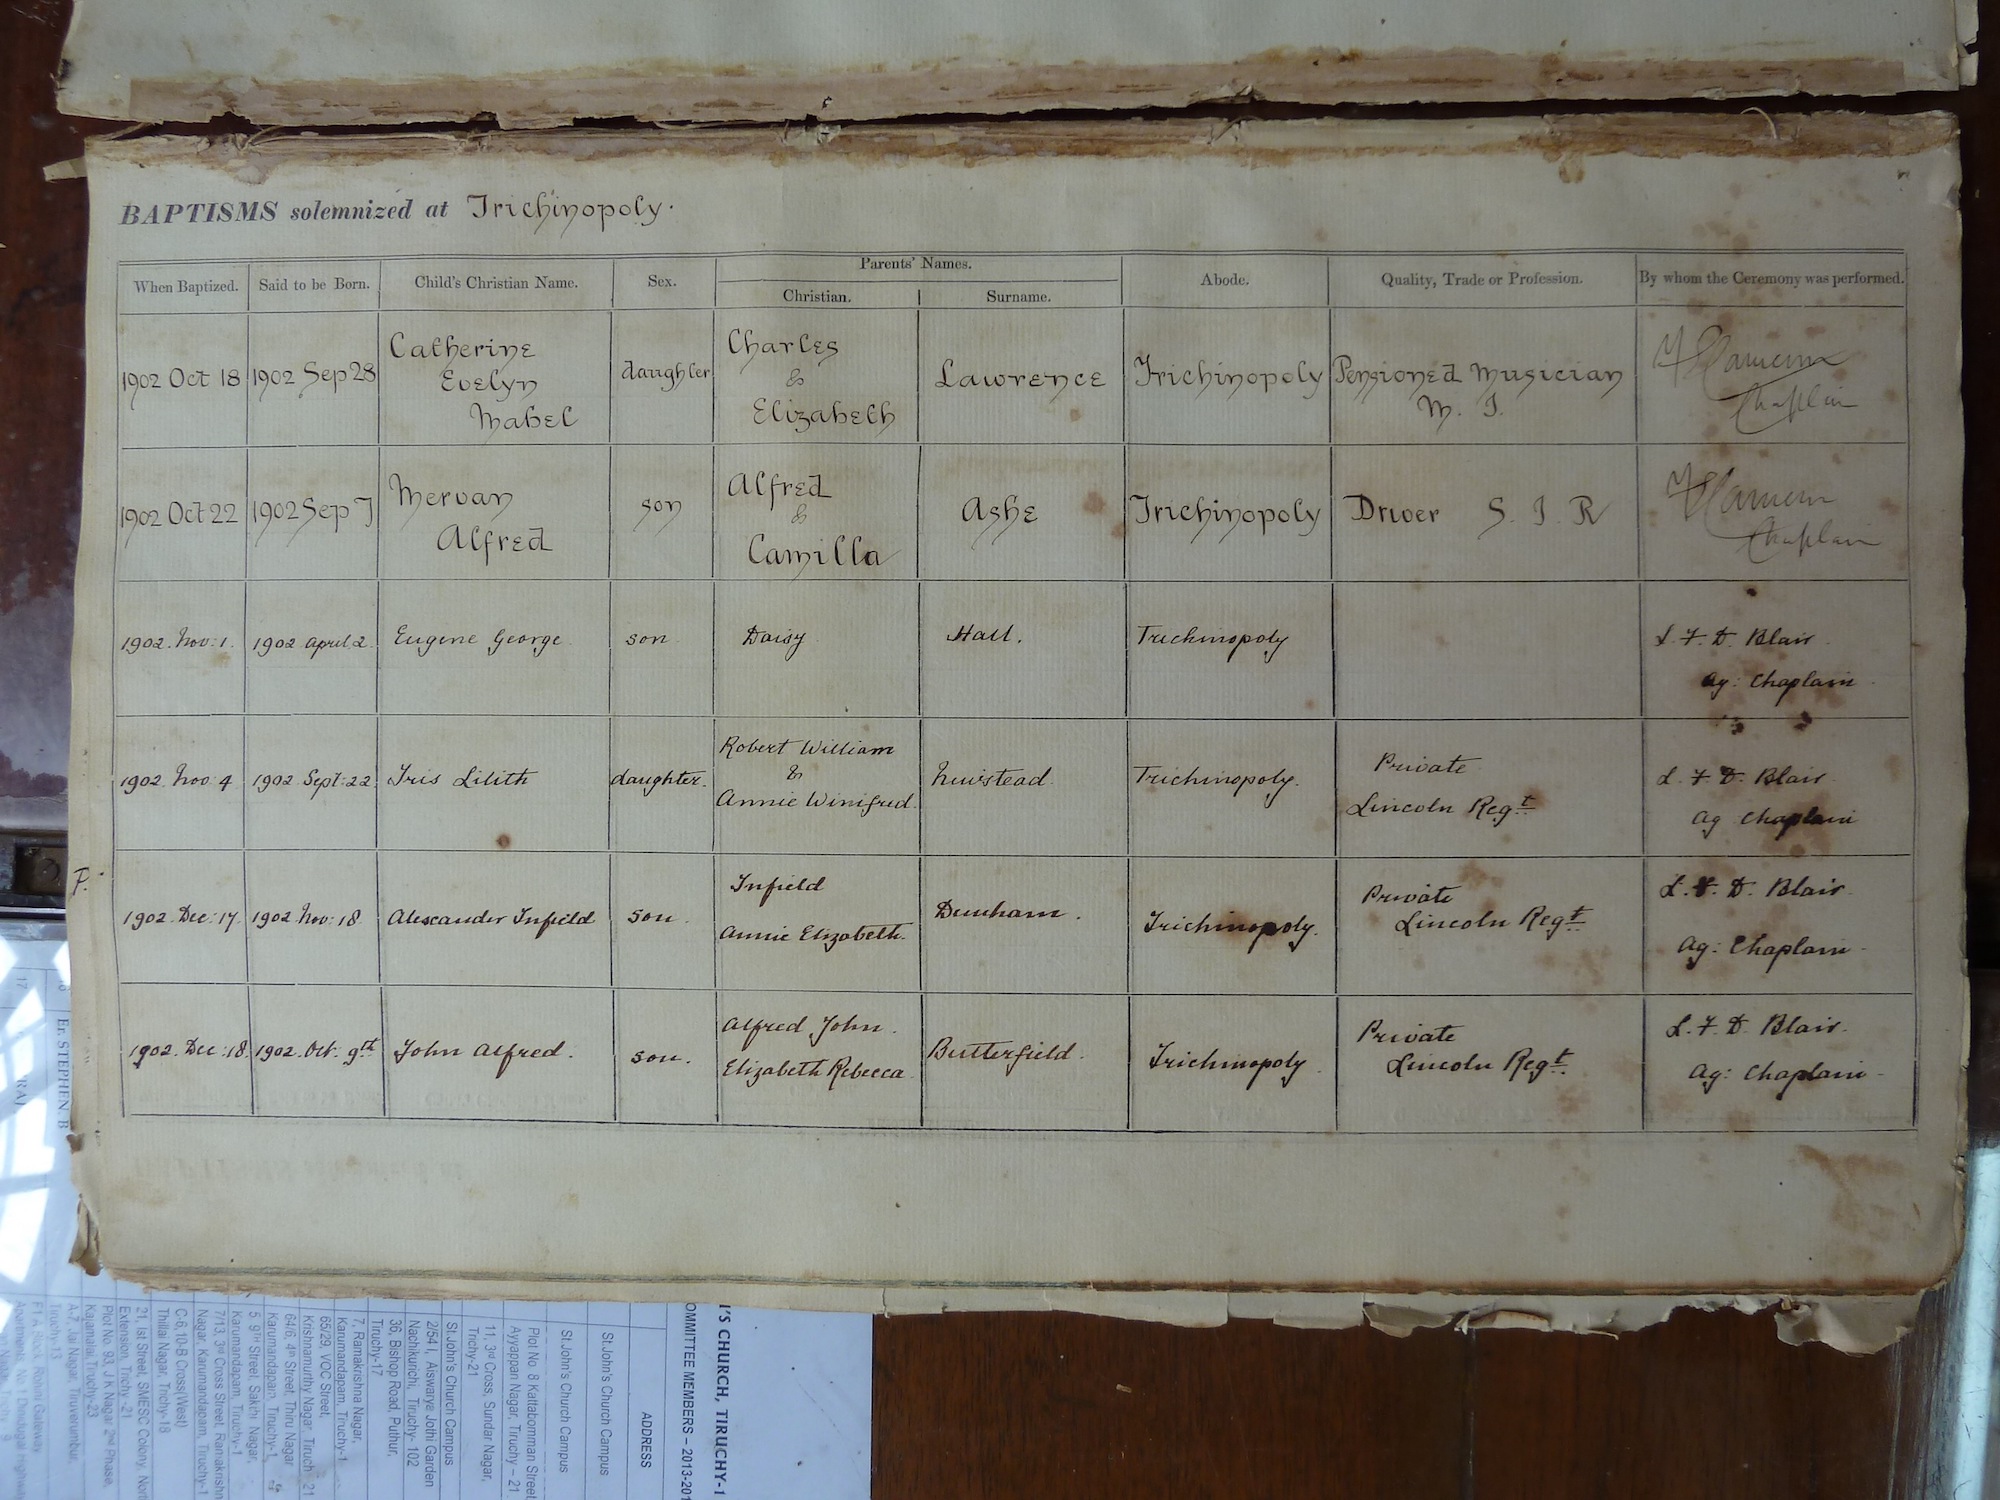 BAPTISMS solemnized at Trichinopoly.
When Baptized. Said to be Born. Child's Christian Name. Sex. Parents' Names. Abode. Quality, Trade or Profession. By whom the Ceremony was performed.
Christian. Surname.
1902 Oct 18 1902 Sep 28 Catherine Evelyn Mabel daughter Charles & Elizabeth Lawrence Trichinopoly Pensioned Musician M. I. Chaplain
1902 Oct 22 1902 Sep 7 Mervan Alfred son Alfred & Camilla Ashe Trichinopoly Driver S. I. R Chaplain
1902. Nov: 1. 1902 April 2. Eugene George. son Daisy Hall. Trichinopoly L. F. D. Blair. Ag: Chaplain
1902. Nov: 4 1902 Sept: 22 Iris Lilith daughter. Robert William & Annie Winifred. Newstead. Trichinopoly. Private Lincoln Regt L. F. D. Blair. Ag Chaplain
F.
1902. Dec: 17. 1902. Nov: 18. Alexander Infield son. Infield Annie Elizabeth. Denham. Trichinopoly. Private Lincoln Regt L. F. D. Blair. Ag: Chaplain
1902. Dec: 18. 1902. Oct. 9th John Alfred. son. Alfred John. Elizabeth Rebecca Butterfield. Trichinopoly. Private Lincoln Regt. L. F. D. Blair. Ag: Chaplain
'S CHURCH, TIRUCHY-1
OMMITTEE MEMBERS – 2013-201
ADDRESS
St.John's Church Campus
St.John's Church Campus
Plot No. 8 Kattabomman Street
Ayyappan Nagar, Tiruchy – 21
11, 3rd Cross, Sundar Nagar,
Trichy-21
St.John's Church Campus
2/54 I, Aiswarya Jothi Garden
Nachikurichi, Tiruchy- 102
36, Bishop Road, Puthur,
Tiruchy-17
7, Ramakrishna Nagar,
Karumandapam, Tiruchy-1
65/29, VOC Street,
Krishnamurthy Nagar, Tiruchy - 21
64/6, 4th Street, Thiru Nagar
Karumandapam, Tiruchy-1
5 9TH Street, Sakthi Nagar,
Karumandapam, Tiruchy-1
7/13, 3rd Cross Street, Ramakrishn
Nagar, Karumandapam, Tiruchy-1
C-6, 10-B Cross(West)
Thillai Nagar, Trichy-18
21, Ist Street, SMESC Colony, Nort
Extension, Trichy -21
Plot No. 93, J K Nagar 2nd Phase,
Kajamalai, Tiruchy-23
A-7, Jai Nagar, Tiruverumbur,
Tiruchy-13
Er. STEPHEN. B
17